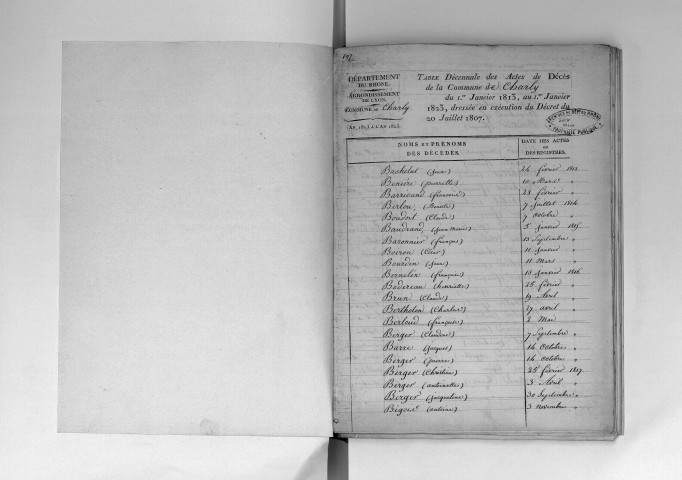 DÉPARTEMENT
DU RHONE.
ARRONDISSEMENT
DE LYON.
COMMUNE de Charly
(AN 1813 A L'AN 1823.
TABLE Décennale des Actes de Décès
de la Commune de Charly
du 1.er Janvier 1813, au 1.er Janvier
1823, dressée en exécution du Décret du
20 Juillet 1807.
NOMS ET PRÉNOMS
DES DÉCÉDÉS.
DATE DES ACTES
OU
DES REGISTRES.
Bachelet (Jean) 24 février 1813
Benière (pierrette) 10 Mars "
Barricand (françoise) 28 février "
Berlou, (Benoite) 7 Juillet 1814
Boudoit (Claude) 7 octobre "
Baudrand (Jean Marie) 5 Janvier 1815
Baronnier (françois) 13 Septembre "
Boiron 11 Janvier "
Bourdin (Jean) 11 Mars "
Bernelin (françoise) 18 Janvier 1816
Badereau (henriette) 25 février "
Brun (Claude) 19 Avril "
Bertholen (Charles) 27 avril "
Berloud (françoise) 2 Mai "
Berger (Claudine) 7 Septembre "
Barre (Jacques) 14 Octobre "
Berger (pierre) 14 octobre "
Berger (Christine) 25 février 1817
Berger (antoinette) 3 Avril "
Berger (Jacqueline) 30 Septembre "
(antoine) 3 novembre "